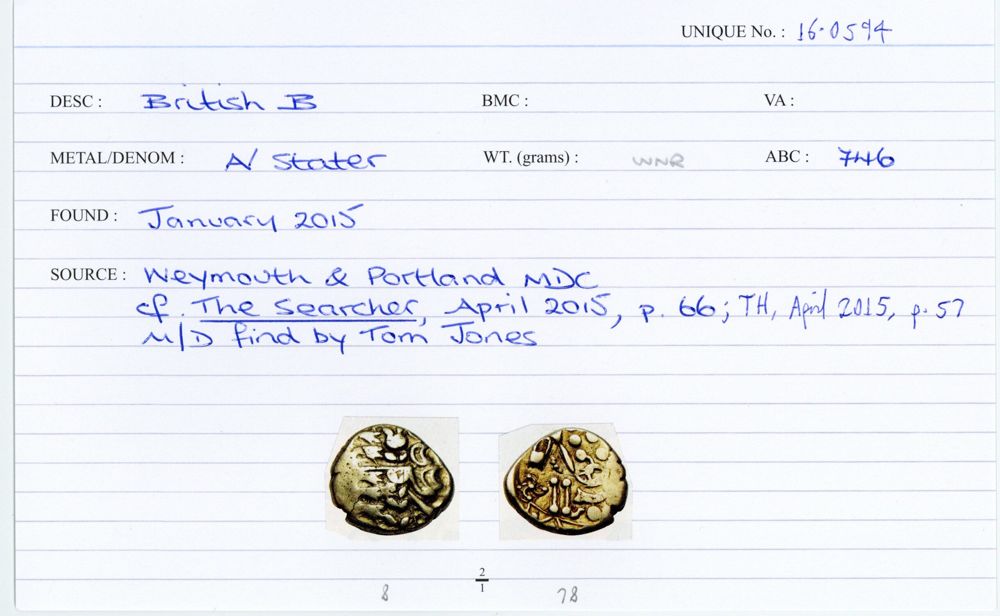 UNIQUE No. : 16·0594
DESC : British B BMC : VA :
METAL/DENOM : A/ Stater WT. (grams) : WNR ABC : 746
FOUND : January 2015
SOURCE : Weymouth & Portland MDC
cf. The Searcher, April 2015, p. 66; TH, April 2015, p. 57
M/D find by Tom Jones
2
1
8 78